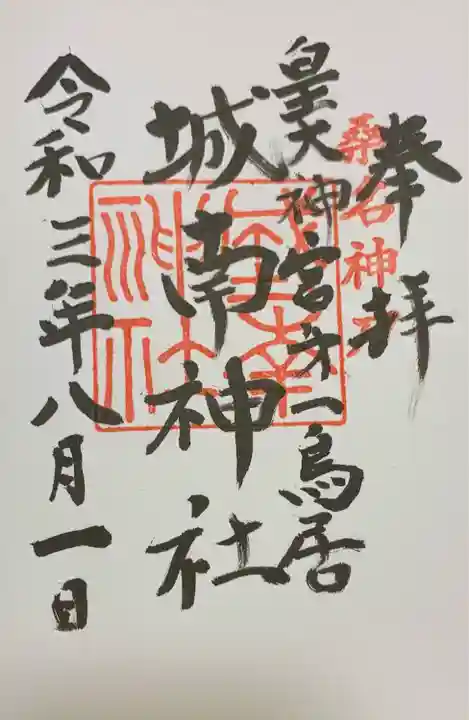 奉拝
桑名神
皇大神宮才一鳥居
城南神社
城南神社
令和三年八月一日